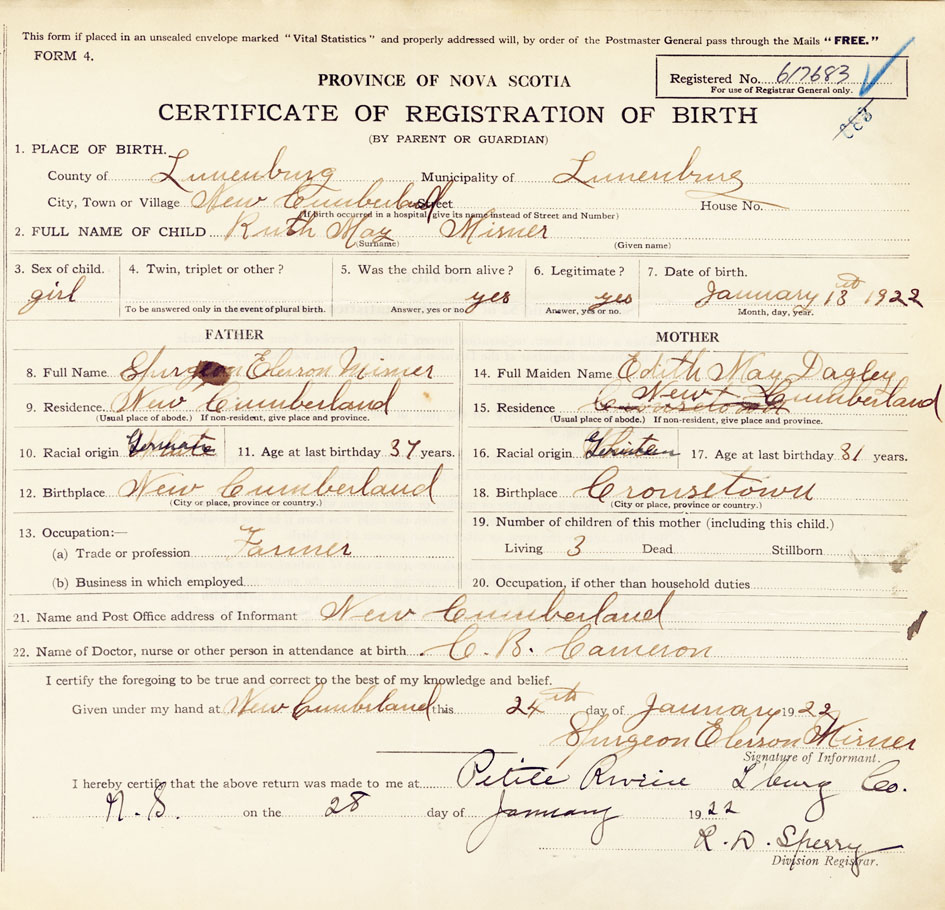 This form if placed in an unsealed envelope marked "Vital Statistics" and properly addressed will, by order of the Postmaster General pass through the Mails "FREE."
FORM 4.
Registered No. 617683
For use of Registrar General only.
PROVINCE OF NOVA SCOTIA
CERTIFICATE OF REGISTRATION OF BIRTH
(BY PARENT OR GUARDIAN)
1. PLACE OF BIRTH.
County of Lunenburg Municipality of Lunenburg
City, Town or Village New Cumberland Street House No.
(If birth occurred in a hospital give its name instead of Street and Number)
2. FULL NAME OF CHILD Ruth May Misner
(Surname) (Given name)
3. Sex of child. 4. Twin, triplet or other? 5. Was the child born alive? 6. Legitimate? 7. Date of birth.
girl yes yes January 13th 1922
To be answered only in the event of plural birth. Answer, yes or no. Answer, yes or no. Month, day, year.
FATHER MOTHER
8. Full Name Spurgeon Elerson Misner 14. Full Maiden Name Edith May Dagley
9. Residence New Cumberland 15. Residence Crousetown New Cumberland
(Usual place of abode.) If non-resident, give place and province. (Usual place of abode.) If non-resident, give place and province.
10. Racial origin 11. Age at last birthday 37 years. 16. Racial origin 17. Age at last birthday 31 years.
12. Birthplace New Cumberland 18. Birthplace Crousetown
(City or place, province or country.) (City or place, province or country.)
13. Occupation:— 19. Number of children of this mother (including this child.)
(a) Trade or profession Farmer Living 3 Dead Stillborn
(b) Business in which employed 20. Occupation, if other than household duties
21. Name and Post Office address of Informant New Cumberland
22. Name of Doctor, nurse or other person in attendance at birth C. B. Cameron
I certify the foregoing to be true and correct to the best of my knowledge and belief.
Given under my hand at New Cumberland this 24th day of January 1922
Spurgeon Elerson Misner
Signature of Informant.
I hereby certify that the above return was made to me at Petite Riviere L'burg Co.
N. S. on the 28 day of January 1922
R. D. Sperry
Division Registrar.